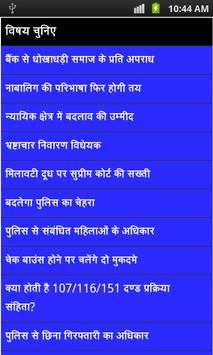 10:44 AM
विषय चुनिए
बैंक से धोखाधड़ी समाज के प्रति अपराध
नाबालिग की परिभाषा फिर होगी तय
न्यायिक क्षेत्र में बदलाव की उम्मीद
भ्रष्टाचार निवारण विधेयक
मिलावटी दूध पर सुप्रीम कोर्ट की सख्ती
बदलेगा पुलिस का चेहरा
पुलिस से संबंधित महिलाओं के अधिकार
चेक बाउंस होने पर चलेंगे दो मुकदमे
क्या होती है 107/116/151 दण्ड प्रक्रिया
संहिता?
पुलिस से छिना गिरफ्तारी का अधिकार